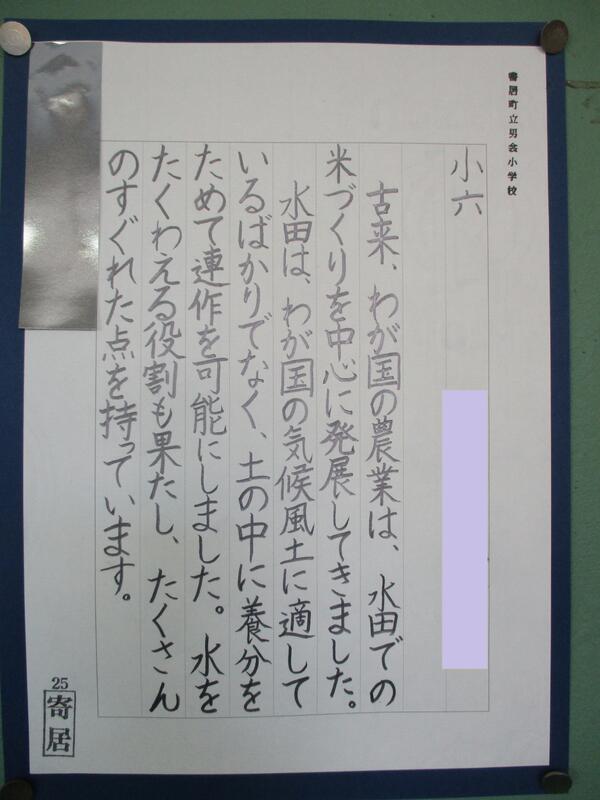 寄居町立男衾小学校
小六
古来、わが国の農業は、水田での
米づくりを中心に発展してきました。
水田は、わが国の気候風土に適して
いるばかりでなく、土の中に養分を
ためて連作を可能にしました。水を
たくわえる役割も果たし、たくさん
のすぐれた点を持っています。
25
寄居